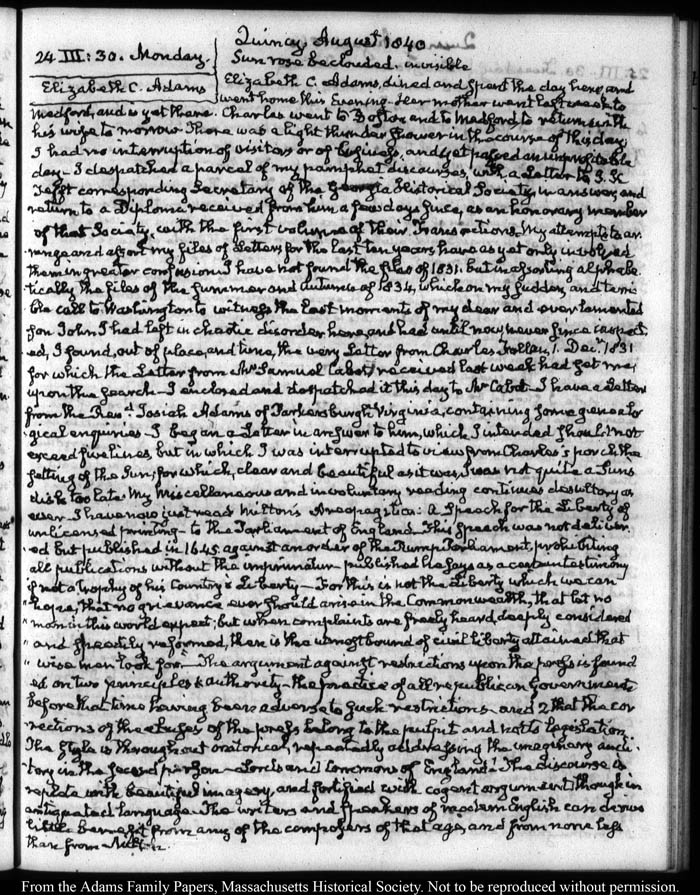 Quincy, August 1840
24. III: 30. Monday.
Sun rose beclouded. invisible
Elizabeth C. Adams
Elizabeth C. Adams, dined and spent the day here, and
went home this Evening. Her mother went last week to
Medford, and is yet there. Charles went to Boston and to Medford, to return with
his wife to morrow. There was a light thunder shower in the course of this day
I had no interruption of visitors or of business, and yet passed an unprofitable
day. I despatched a parcel of my pamphlet discourses, with a Letter to I. K
Tefft corresponding Secretary of the Georgia Historical Society, in answer, and
return to a Diploma received from him a few days since, as an honorary member
of that Society, with the first volume of their Transactions. My attempts to ar
range and assort my files of Letters for the last ten years, have as yet only involved
them in greater confusion. I have not found the files of 1831. but in assorting alphabe
tically the files of the Summer and autumn of 1834, which on my sudden, and terri
ble call to Washington to witness the last moments of my dear and ever lamented
son John I had left in chaotic disorder here, and had until now never since inspect
ed, I found, out of place, and time, the very Letter from Charles Follen, 1. Decr. 1831
for which the Letter from Mr Samuel Cabot, received last week had set me,
upon the search. I enclosed and despatched it this day to Mr Cabot. I have a Letter
from the Revd. Josiah Adams of Parkersburgh Virginia, containing some genealo
gical enquiries. I began a Letter in answer to him, which I intended should not
exceed five lines, but in which I was interrupted to view from Charles's porch the
setting of the Sun; for which, clear and beautiful as it was, I was not quite a Suns
disk too late. My miscellaneous and involuntary reading continues desultory as
ever. I have now just read Milton's Areopagitica: A Speech for the Liberty of
unlicensed printing, to the Parliament of England. This Speech was not deliver
ed but published in 1645. against an order of the Rump Parliament, prohibiting
all publications without the imprimatur. published he says as a certain testimony
if not a Trophy of his Country's Liberty. For this is not the Liberty which we can
" hope, that no grievance ever should arise in the Commonwealth, that let no
" man in this world expect; but when complaints are freely heard, deeply considered
" and speedily reformed, then is the utmost bound of civil liberty attained that
" wise men look for. The argument against restrictions upon the press is found
ed on two principles 1. authority. the practice of all republican Governments
before that time having been adverse to such restrictions. and 2 that the cor
rections of the abuses of the press belong to the pulpit and not to Legislation.
The Style is throughout oratorical, repeatedly addressing the imaginary audi
tory in the second person. Lords and Commons of England! The discourse is
replete with beautiful imagery, and fortified with cogent argument, though in
antiquated language. The writers and speakers of modern English can derive
little benefit from any of the composers of that age, and from none less
than from Milton.
From the Adams Family Papers, Massachusetts Historical Society. Not to be reproduced without permission.